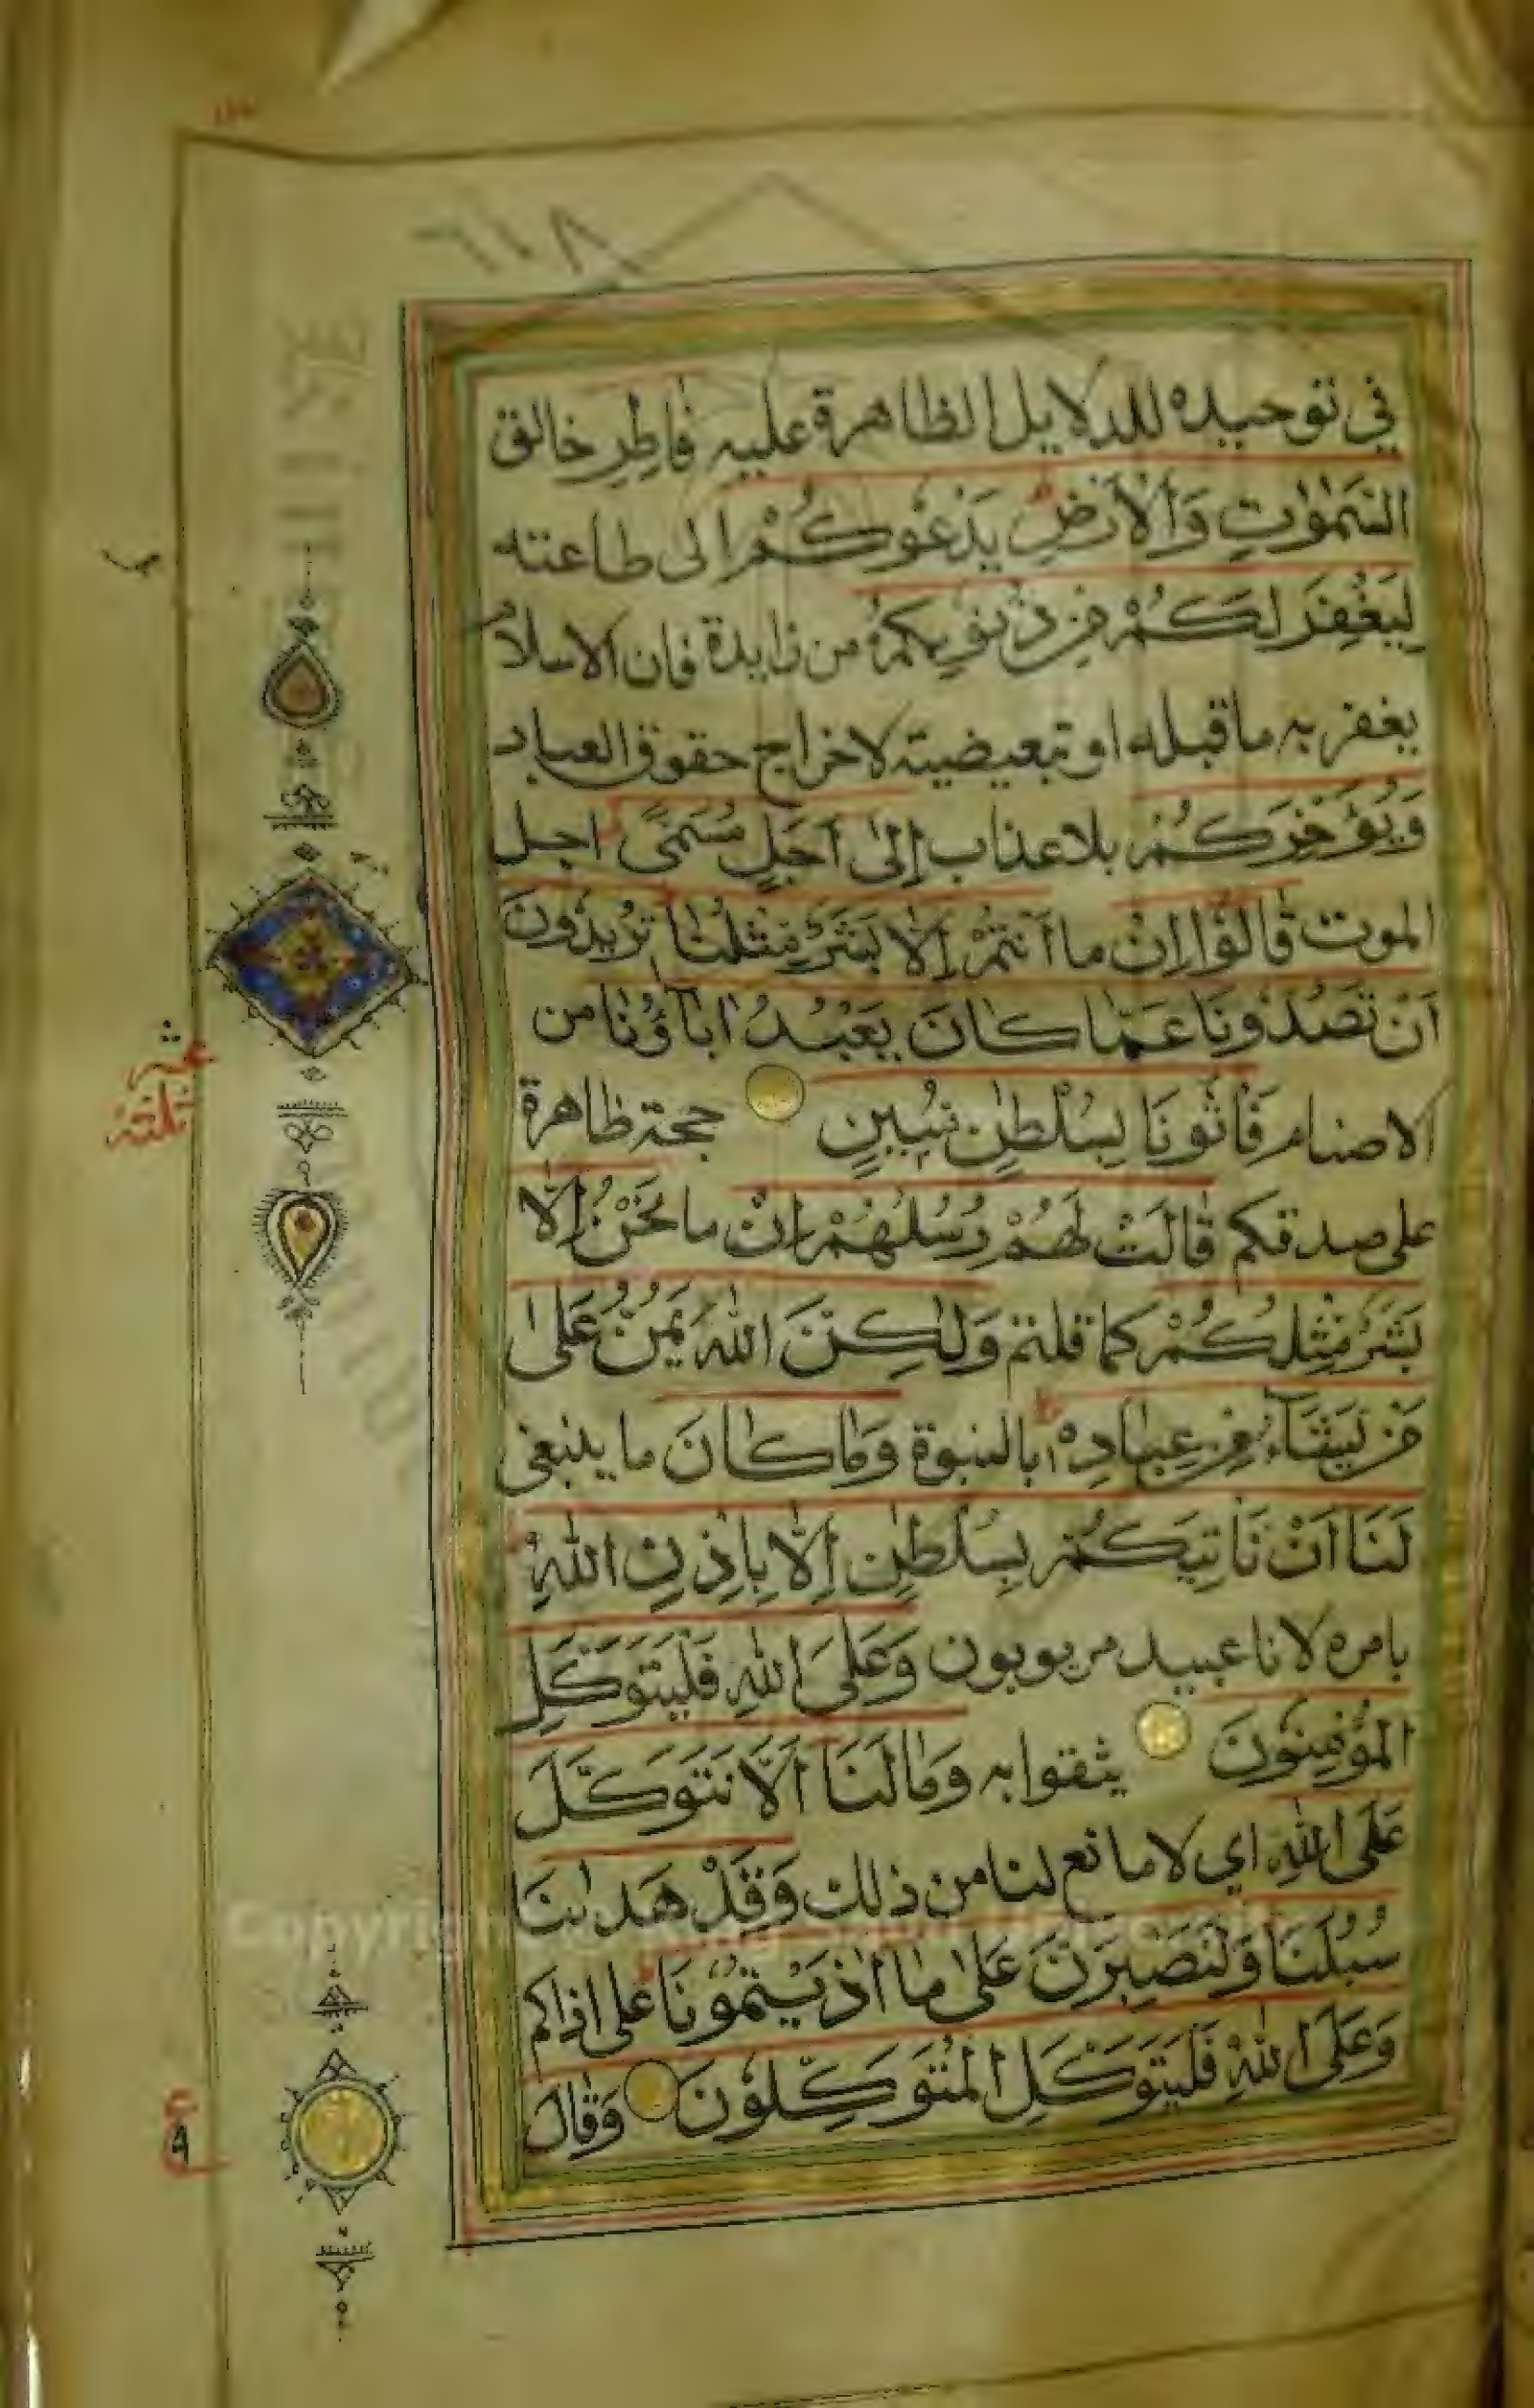 في توحيده للدلايل الظاهرة عليه فَاطِرِ خالق
السَّمٰوٰتِ وَالْاَرْضِ يَدْعُوكُمْ الى طاعته
لِيَغْفِرَ لَكُمْ مِنْ ذُنُوبِكُمْ من زايدة فان الاسلام
يغفر به ما قبله او تبعيضية لاخراج حقوق العباد
وَيُؤَخِّرَكُمْ بلا عذاب اِلٰى اَجَلٍ مُسَمًّى اجل
الموت قَالُوْا اِنْ ما اَنْتُمْ اِلَّا بَشَرٌ مِثْلُنَا تُرِيدُونَ
اَنْ تَصُدُّونَا عَمَّا كَانَ يَعْبُدُ اٰبَاؤُنَا من
الاصنام فَأْتُونَا بِسُلْطٰنٍ مُبِينٍ حجة ظاهرة
على صدقكم قَالَتْ لَهُمْ رُسُلُهُمْ اِنْ ما نَحْنُ اِلَّا
بَشَرٌ مِثْلُكُمْ كما قلتم وَلٰكِنَّ اللّٰهَ يَمُنُّ عَلٰى
مَنْ يَشَآءُ مِنْ عِبَادِهٖ بالنبوة وَمَا كَانَ ما ينبغي
لَنَا اَنْ نَاْتِيَكُمْ بِسُلْطٰنٍ اِلَّا بِاِذْنِ اللّٰهِ
بامره لانا عبيد مربوبون وَعَلَى اللّٰهِ فَلْيَتَوَكَّلِ
الْمُؤْمِنُونَ يثقوا به وَمَا لَنَا اَلَّا نَتَوَكَّلَ
عَلَى اللّٰهِ اي لا مانع لنا من ذلك وَقَدْ هَدٰىنَا
سُبُلَنَا وَلَنَصْبِرَنَّ عَلٰى مَا اٰذَيْتُمُونَا على اذاكم
وَعَلَى اللّٰهِ فَلْيَتَوَكَّلِ الْمُتَوَكِّلُونَ وَقَالَ